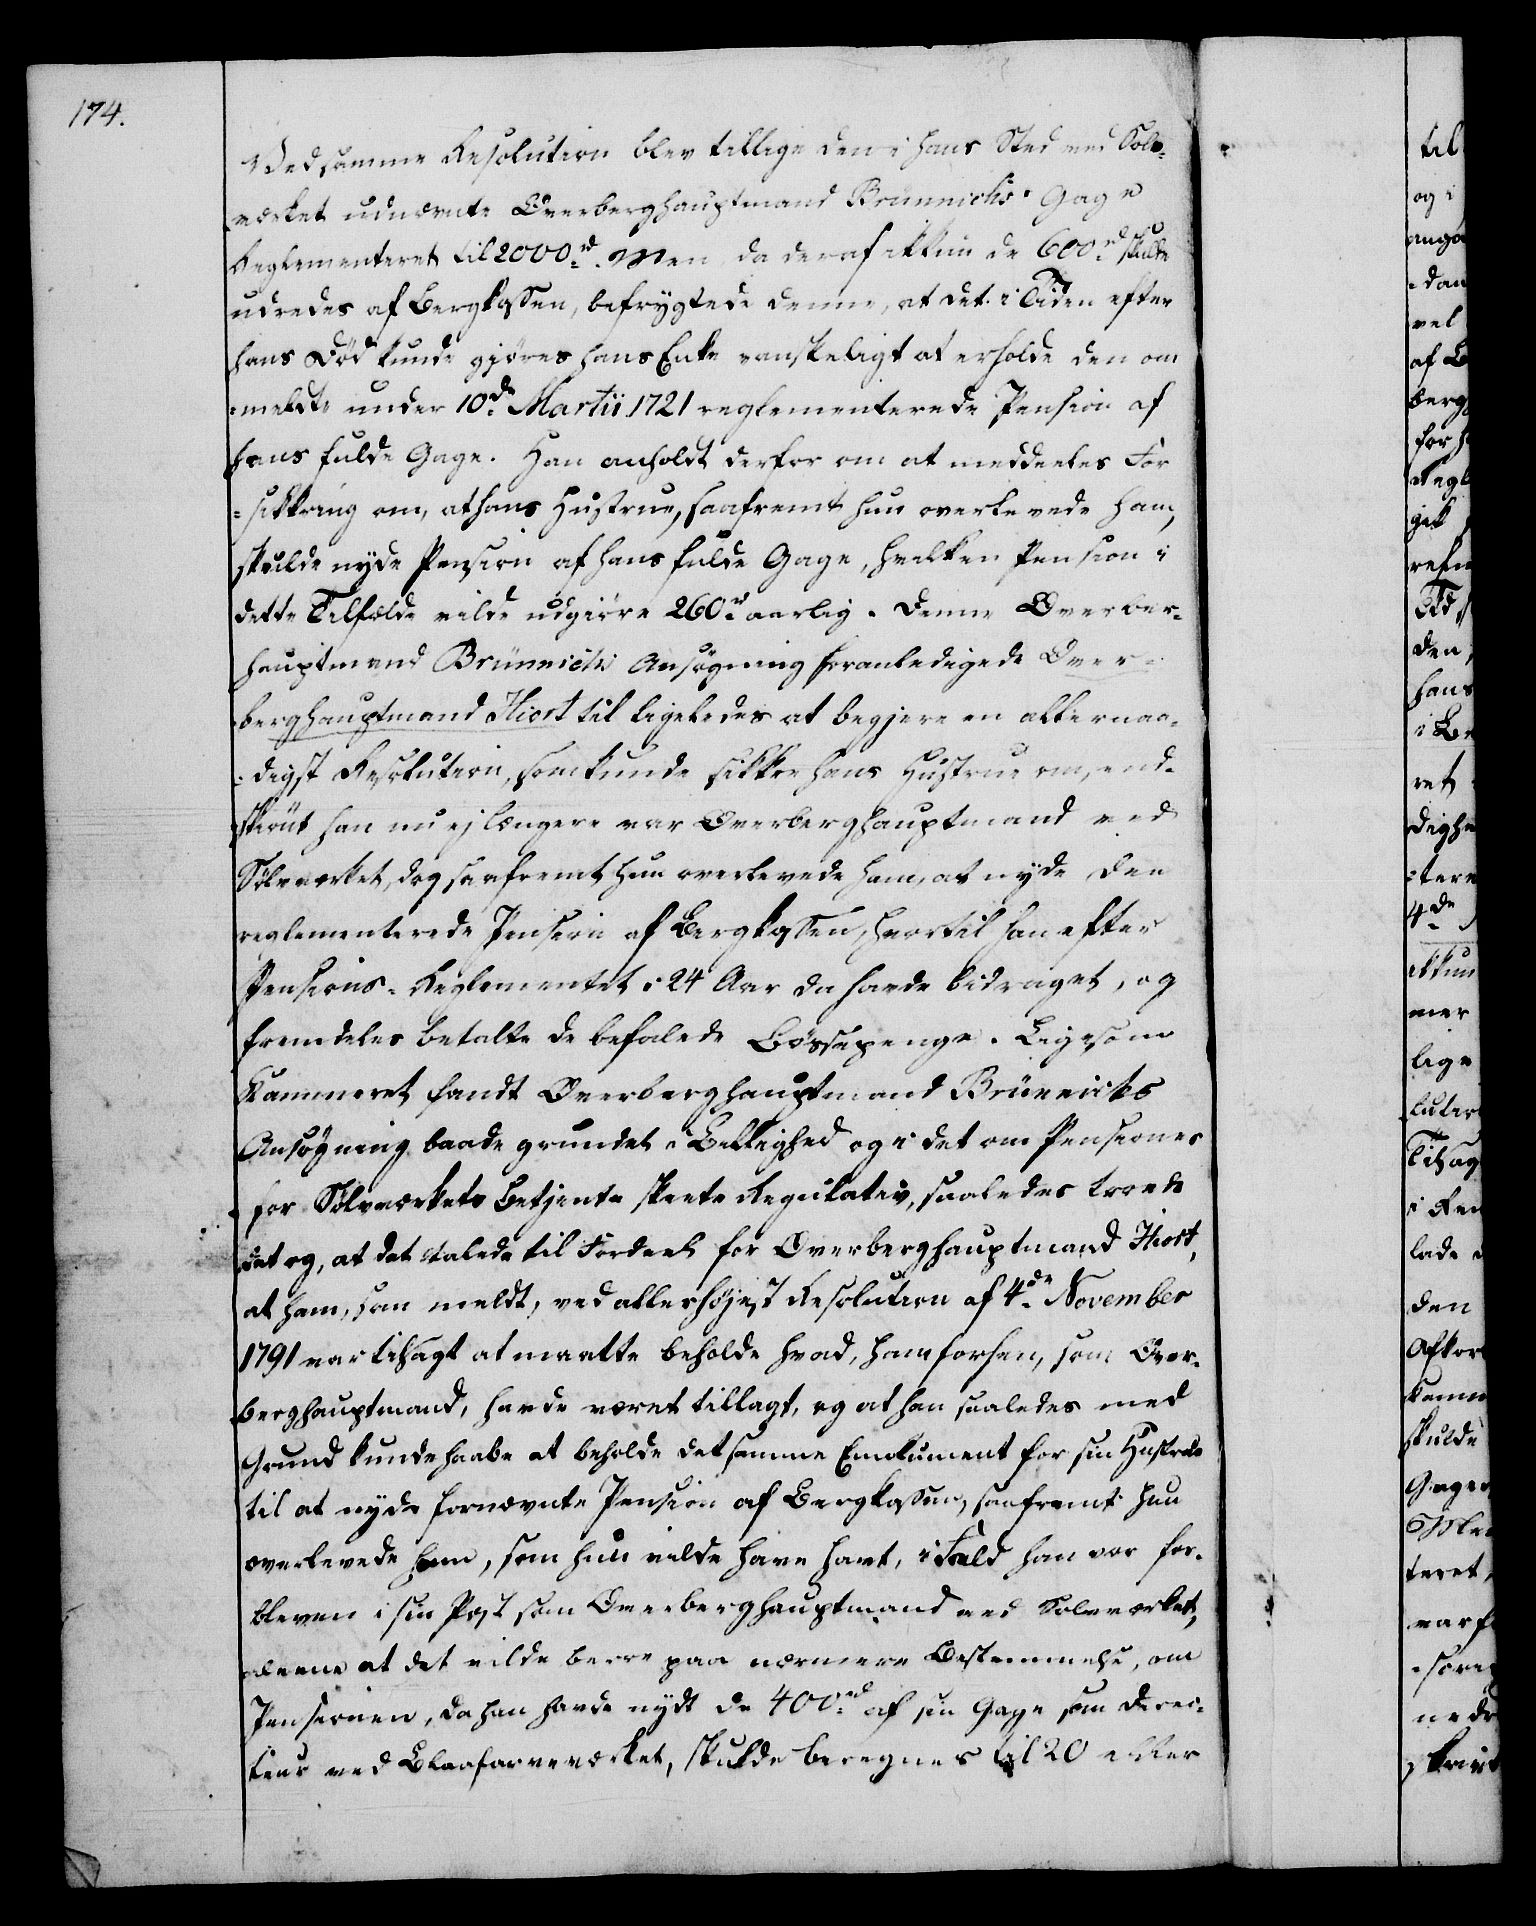 174.
Ved samme Resolution blev tillige den i hans Sted ved Sølv-
værket udnævnte Overberghauptmand Brünnichs Gage
Reglementeret til 2000 rd. Men da deraf ikkun de 600 rd skulde
udredes af Bergkassen, befrygtede denne, at det i Tiden efter
hans Død kunde gjøres hans Enke vanskeligt at erholde den om
=meldte under 10de Martii 1721 reglementerede Pension af
hans fulde Gage. Han anholdt derfor om at meddeeles For
=sikkring om, at hans Hustrue, saafremt hun overlevede ham,
skulde nyde Pension af hans fulde Gage, hvilken Pension i
dette Tilfælde vilde udgiøre 260 rd aarlig. Denne Overber-
hauptmand Brünnichs Ansøgning foranledigede Over-
berghauptmand Hiort til ligeledes at begjere en allernaa-
=digst Resolution, som kunde sikkre hans Hustrue om, end-
skiønt han nu ej længere var Overberghauptmand ved
Sølvværket, dog saafremt hun overlevede ham, at nyde den
reglementerede Pension af Bergkassen, hvortil han efter
Pensions-Reglementet i 24 Aar da havde bidraget, og
fremdeles betalte de befalede Bössepenge. Ligesom
Kammeret fandt Overberghauptmand Brünnichs
Ansøgning baade grundet i Billighed og i det om Pensioner
for Sølvværkets Betjente skeete Regulativ, saaledes troede
det og, at det talede til Fordeel for Overberghauptmand Hiort,
at ham, som meldt, ved allerhøjest Resolution af 4de November
1791 var tilsagt at maatte beholde hvad, ham forhen, som Over-
berghauptmand, havde været tillagt, og at han saaledes med
Grund kunde haabe at beholde det samme Emolument for sin Hustrue
til at nyde fornævnte Pension af Bergkassen, saafremt hun
overlevede ham, som hun vilde have havt, i Fald han var for-
bleven i sin Post som Overberghauptmand ved Sølvværket,
alene at det vilde beroe paa nærmere Bestemmelse, om
Pensionen, da han havde nydt de 400 rd af sin Gage som Direc-
teur ved Blaafarveværket, skulde beregnes til 20 eller
til
og i
vel
af
berg
for
gik
Tid
den
hans
ret
4de
ikkun
mer
lige
lade
den
skulde
Gager
teret,